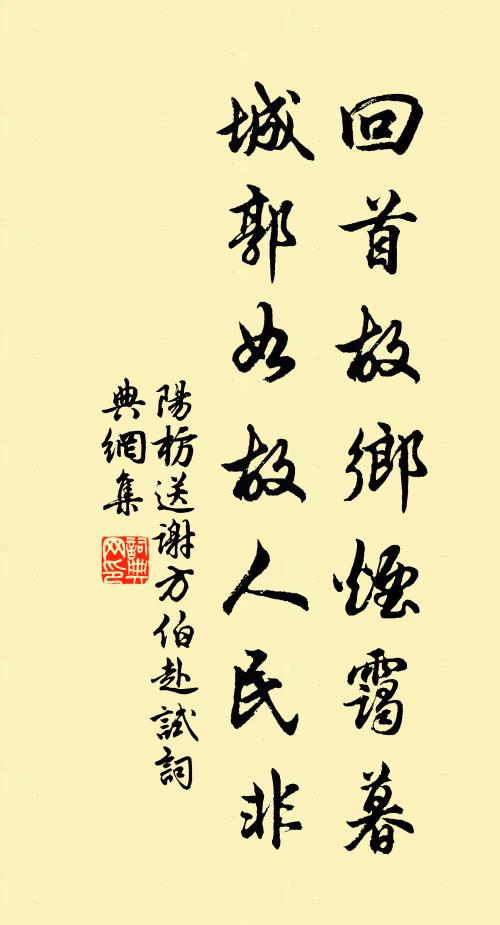 回首故鄉煙靄暮
城郭如故人民非
陽枋送謝方伯赴試詞
典網集
詞典
网印